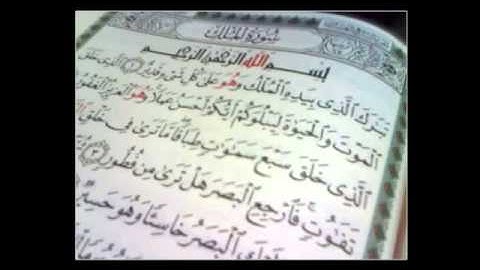 سُورَةُ الْمُلْكِ
بِسْمِ اللَّهِ الرَّحْمَٰنِ الرَّحِيمِ
تَبَارَكَ الَّذِي بِيَدِهِ الْمُلْكُ وَهُوَ عَلَىٰ كُلِّ شَيْءٍ قَدِيرٌ ١ الَّذِي خَلَقَ
الْمَوْتَ وَالْحَيَاةَ لِيَبْلُوَكُمْ أَيُّكُمْ أَحْسَنُ عَمَلًا وَهُوَ الْعَزِيزُ الْغَفُورُ
الَّذِي خَلَقَ سَبْعَ سَمَاوَاتٍ طِبَاقًا مَا تَرَىٰ فِي خَلْقِ
تَفَاوُتٍ فَارْجِعِ الْبَصَرَ هَلْ تَرَىٰ مِنْ فُطُورٍ ٣
إِلَيْكَ الْبَصَرُ خَاسِئًا وَهُوَ حَسِيرٌ